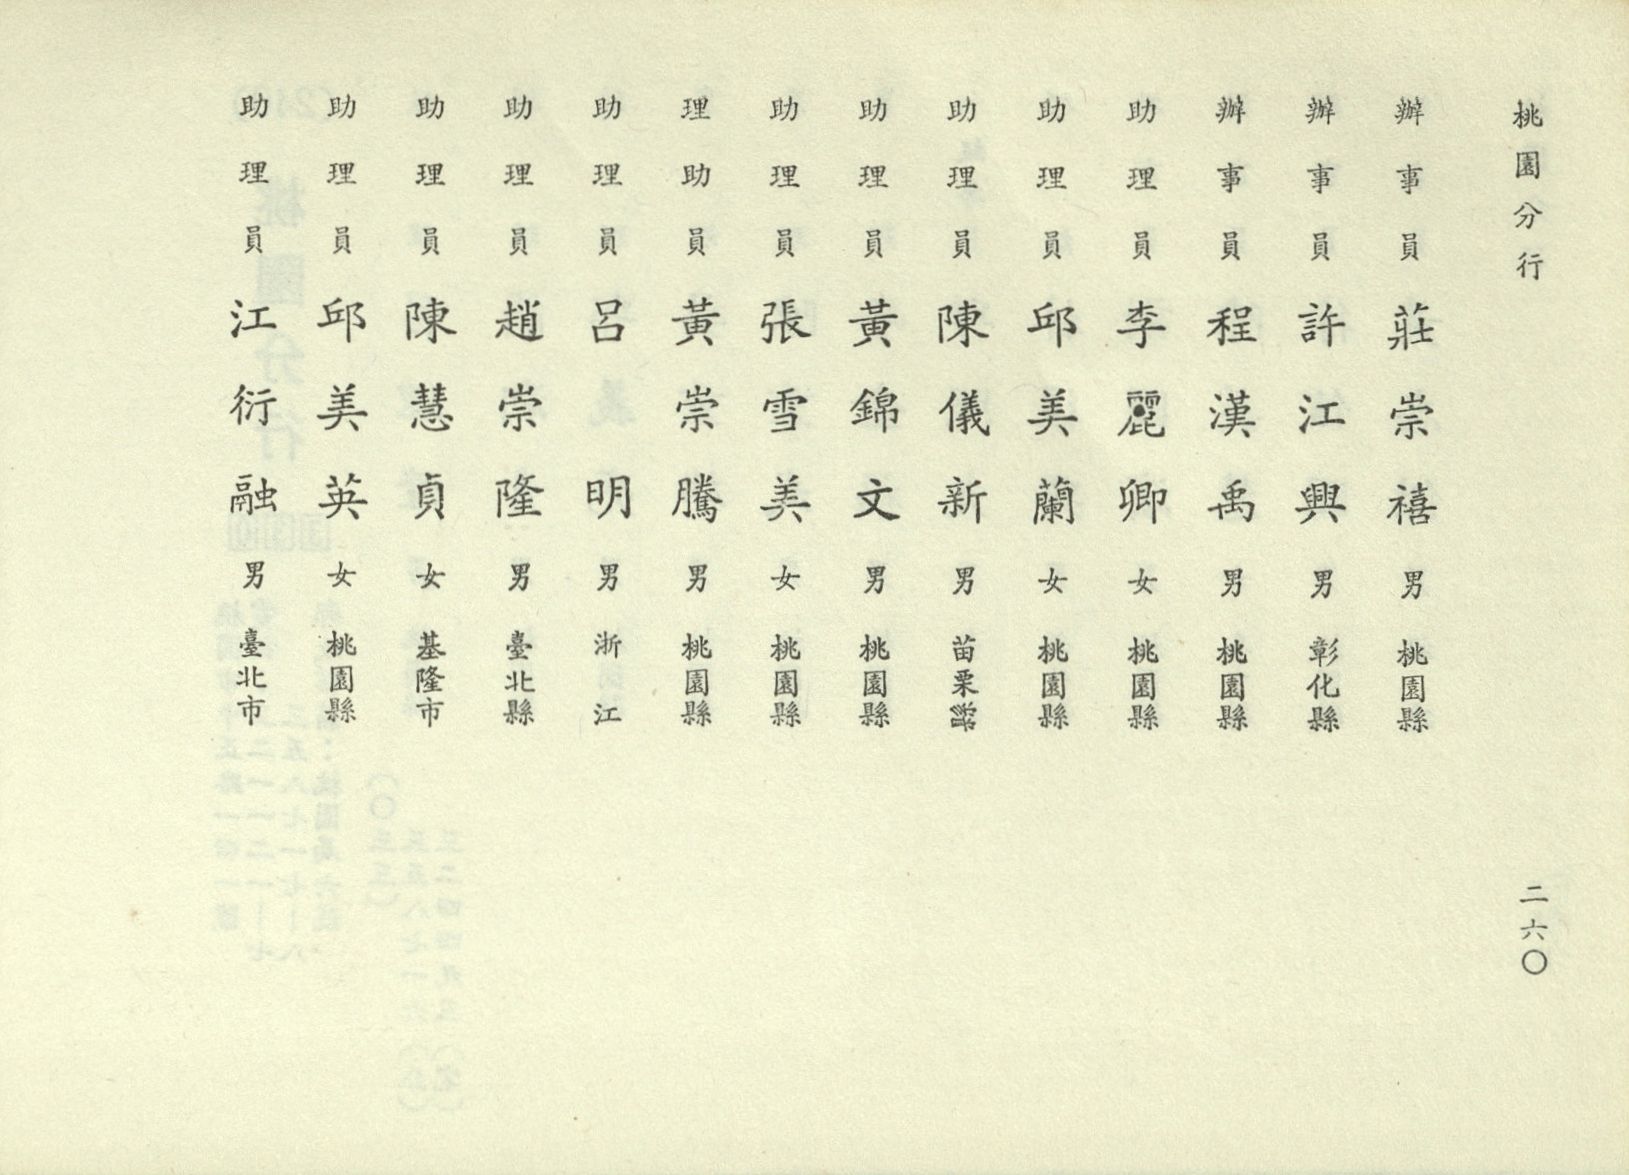 桃園分行
辦事員 莊崇禧 男 桃園縣
辦事員 許江興 男 彰化縣
辦事員 程漢禹 男 桃園縣
助理員 李麗卿 女 桃園縣
助理員 邱美蘭 女 桃園縣
助理員 陳儀新 男 苗栗縣
助理員 黃錦文 男 桃園縣
助理員 張雪美 女 桃園縣
理助員 黃崇騰 男 桃園縣
助理員 呂明 男 浙江
助理員 趙崇隆 男 臺北縣
助理員 陳慧貞 女 基隆市
助理員 邱美英 女 桃園縣
助理員 江衍融 男 臺北市
二六〇